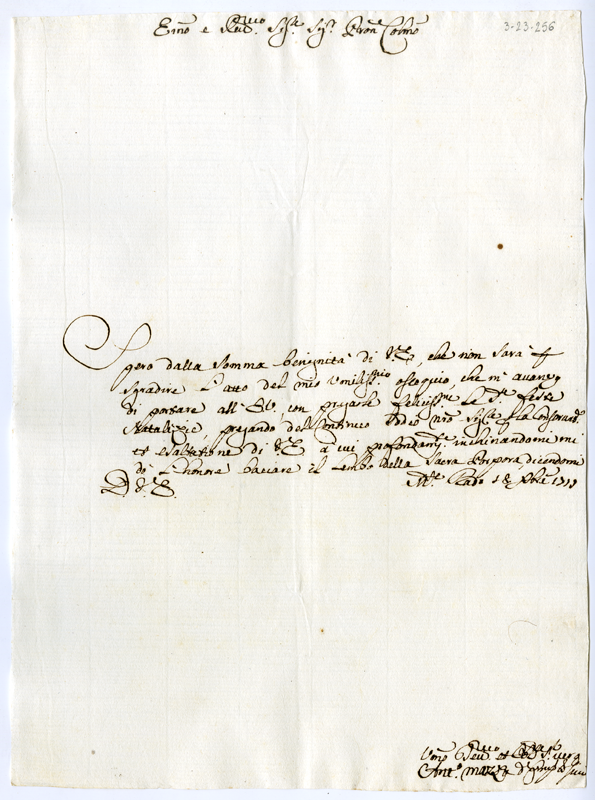 Emo e Rmo Sigr. Sigr. Pron Colmo
3-23-256
Spero dalla somma benignità di V.E., che non sarà p
sgradire l'atto del mio umiliss.mo ossequio, che m'avanzo
di portare all' EV. con pregarle feliciss.me le S.te feste
Natalizie, pregando del continuo Iddio nro Sigre p la conservaz.
et esaltatione di V.E. a cui profondam.te inchinandomi mi
di l'honore bacciare il lembo della Sacra Porpora, dicendomi
D V.E.
18 Xbre 1717
Umo
Ant.o